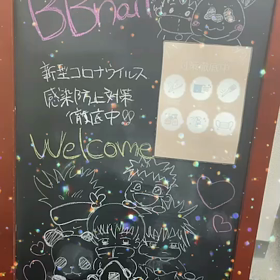 BBnail
新型コロナウイルス
感染防止対策
徹底中!!
Welcome